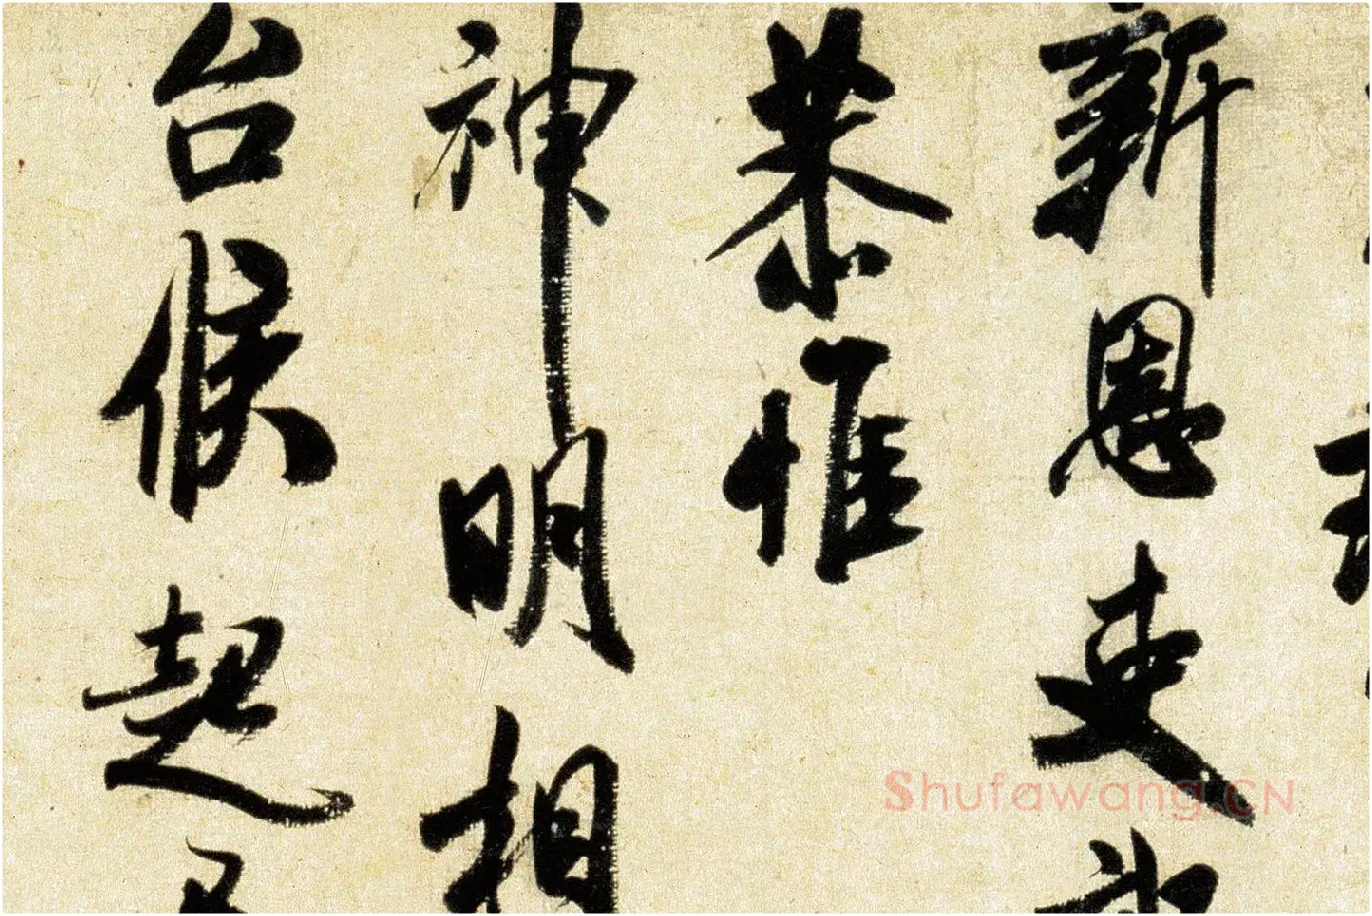 新恩吏
恭惟
神明相
台候起
Shufawang.CN